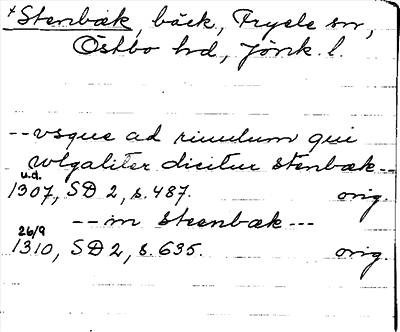 +Stenbæk, bäck, Fryele sn,
Östbo hd, Jönk. l.
-- vsque ad riuulum qui
wlgaliter dicitur stenbæk --
u.d.
1307, SD 2, s. 487. orig.
-- in steenbæk ---
26/9
1310, SD 2, s. 635. orig.